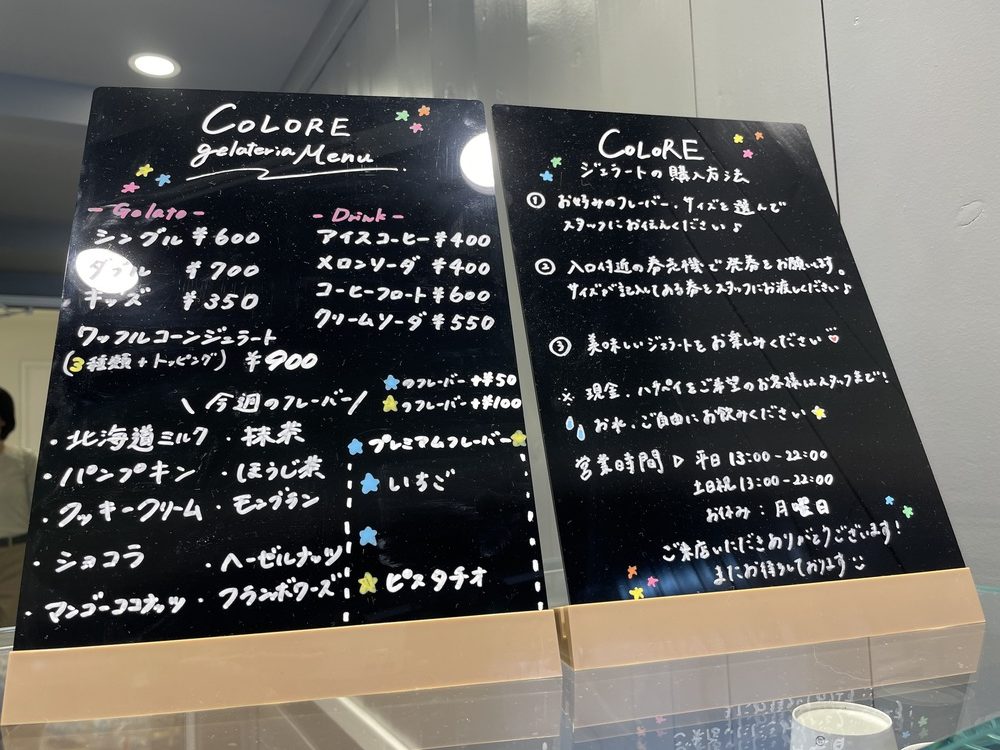 COLORE
gelateria Menu
- Gelato -
シングル ¥600
ダブル ¥700
キッズ ¥350
ワッフルコーンジェラート
(3種類+トッピング) ¥900
- Drink -
アイスコーヒー ¥400
メロンソーダ ¥400
コーヒーフロート ¥600
クリームソーダ ¥550
★のフレーバー +¥50
★のフレーバー +¥100
\ 今週のフレーバー /
・北海道ミルク ・抹茶
・パンプキン ・ほうじ茶
・クッキークリーム ・モンブラン
・ショコラ ・ヘーゼルナッツ
・マンゴーココナッツ ・フランボワーズ
★プレミアムフレーバー★
★いちご
★
★ピスタチオ
COLORE
ジェラートの購入方法
① お好みのフレーバー、サイズを選んで
スタッフにお伝えください♪
② 入口付近の券売機で発券をお願いします。
サイズが記入してある券をスタッフにお渡しください♪
③ 美味しいジェラートをお楽しみください♡
※ 現金、ハチペイをご希望のお客様はスタッフまで!
お水、ご自由にお飲みください★
営業時間 ▷ 平日 13:00-22:00
土日祝 13:00-22:00
お休み:月曜日
ご来店いただきありがとうございます!
またお待ちしております